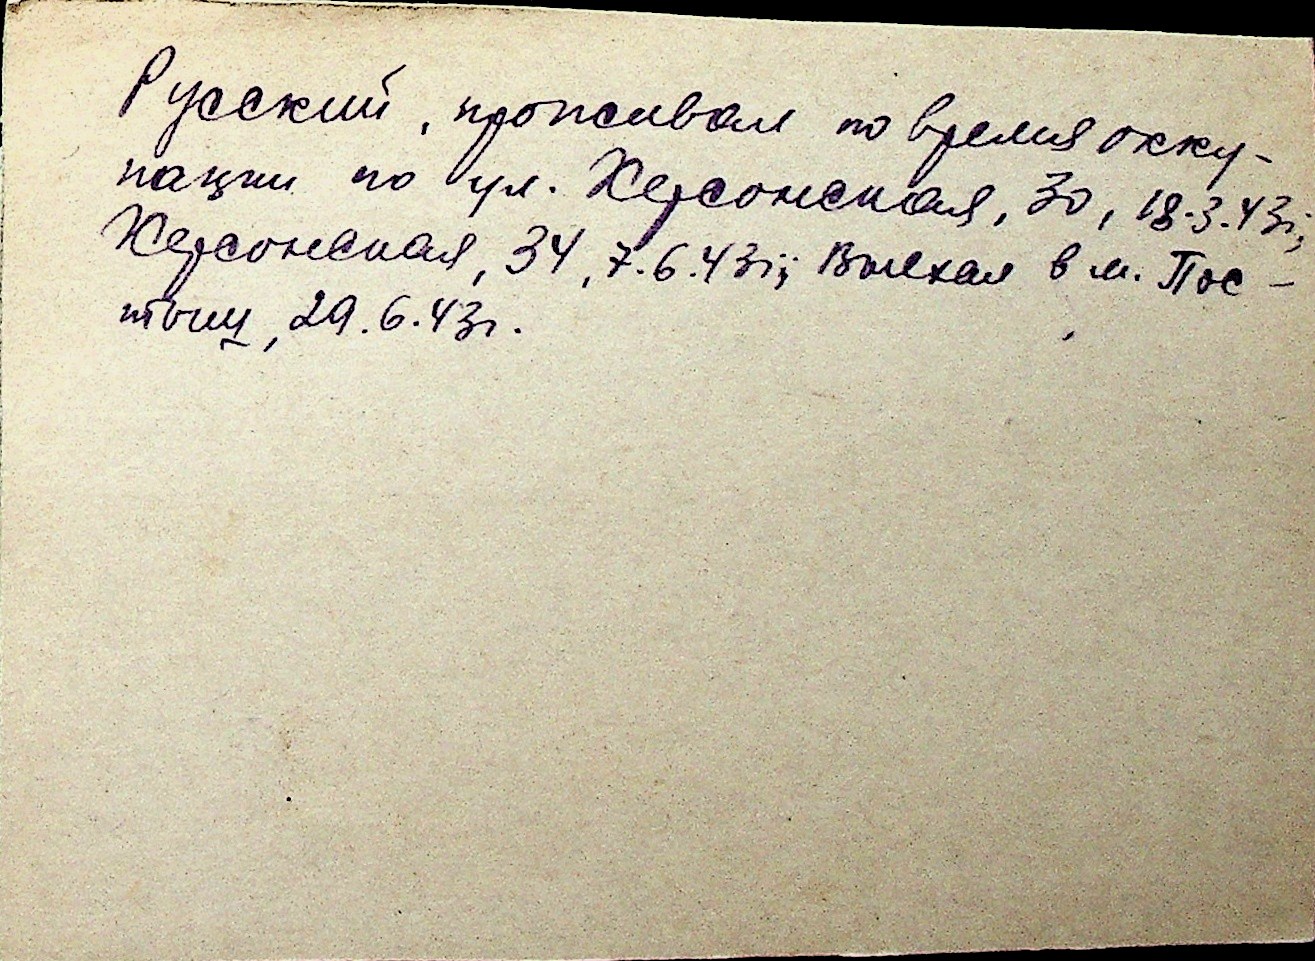 Русский, проживал по время окку-
пации по ул. Херсонская, 30, 18.3.43г;
Херсонская, 34, 7.6.43г; Выехал в м. Пос-
толы, 29.6.43г.